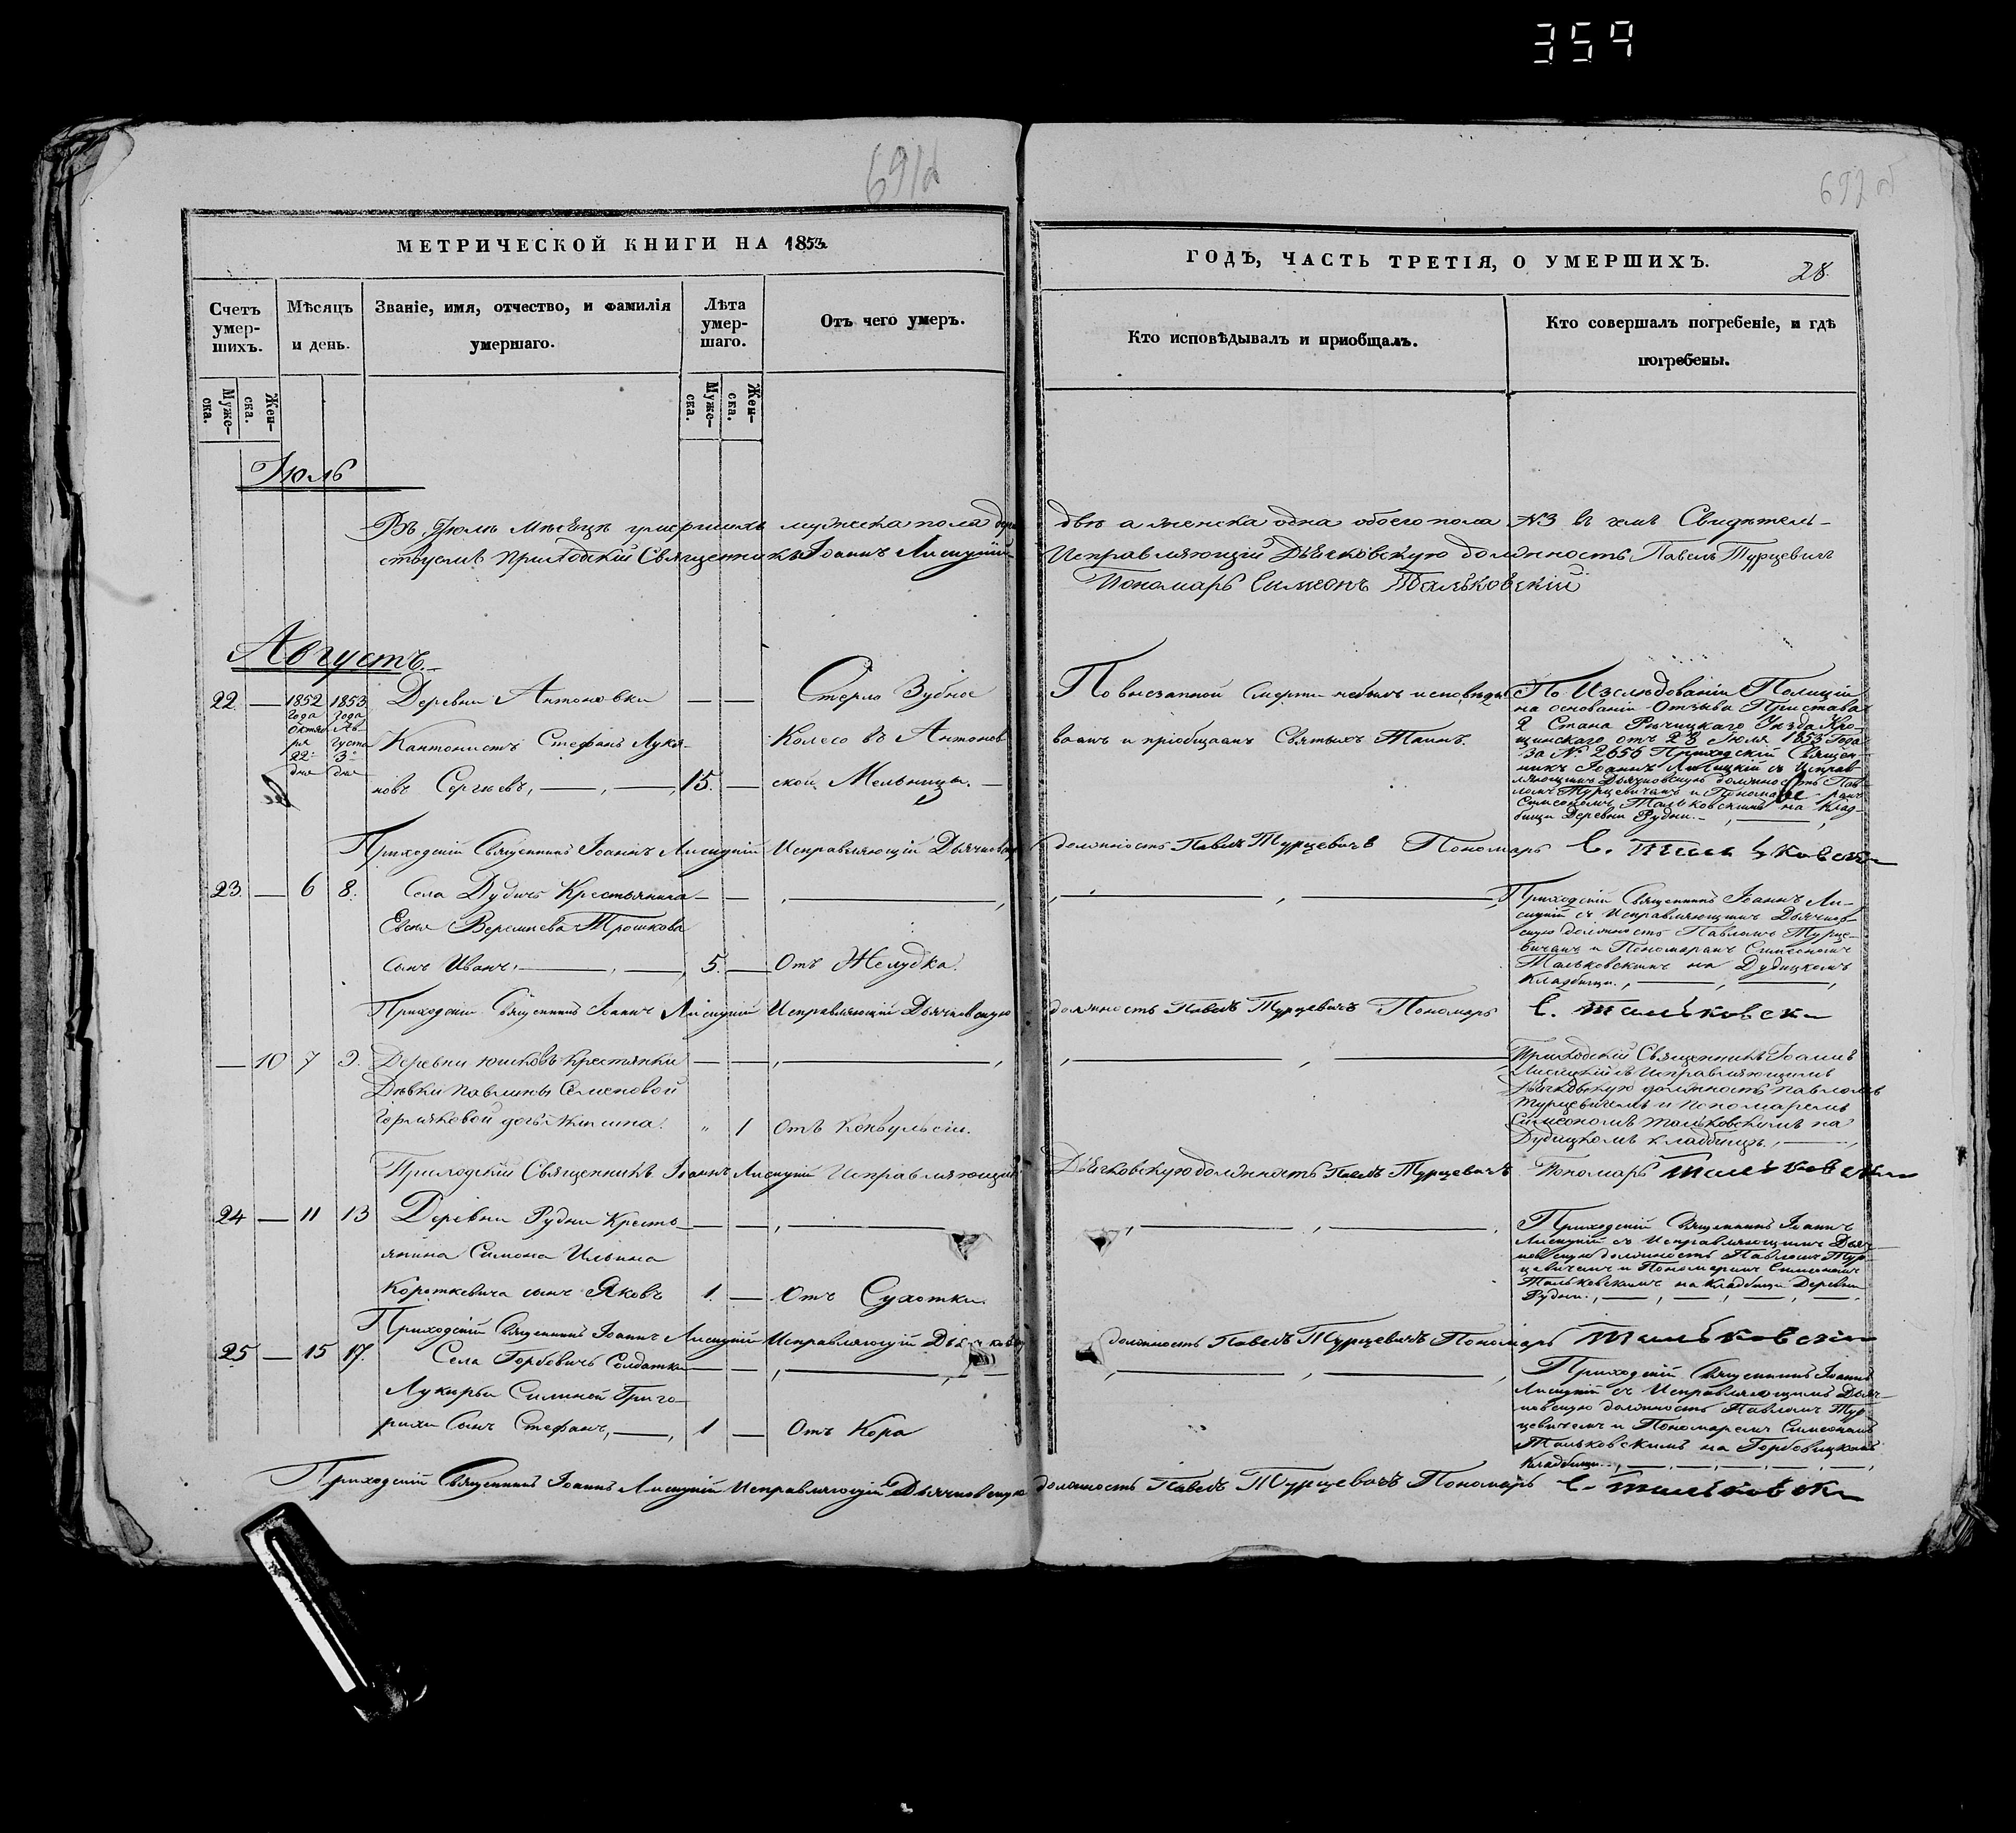 359
691
692
МЕТРИЧЕСКОЙ КНИГИ НА 1853
ГОДЪ, ЧАСТЬ ТРЕТІЯ, О УМЕРШИХЪ.
28.
Счетъ умер-шихъ.
Мѣсяцъ и день.
Званіе, имя, отчество, и фамилія умершаго.
Лѣта умер-шаго.
Отъ чего умеръ.
Кто исповѣдывалъ и пріобщалъ.
Кто совершалъ погребеніе, и гдѣ погребены.
Муже-ска.
Жен-ска.
Муже-ска.
Жен-ска.
Іюль
Въ Іюлѣ Мѣсяцѣ умершихъ мужеска пола
двѣ а женска одна обоего пола №3 въ чемъ Свидѣтель-
ствуемъ Приходскій Священникъ Іоаннъ Лисицкій
Исправляющій Дьячковскую должность Павелъ Турцевичъ
Пономарь Симеонъ Тальковскій
Августъ
22. —
1852 года Октяб-ря 22: дня
1853 года Ав-густа 3: дня
Деревни Антоновки
Кантонистъ Стефанъ Лукя-
новъ Сергѣевъ, — , — 15. —
Стерло Зубное
Колесо въ Антонов
ской Мельницы. —
По внезапной Смерти небылъ исповѣды
ванъ и пріобщаанъ Святыхъ Таинъ.
По Изслѣдованіи Полиціи
на основаніи Отзыва Пристава
2 Стана Рѣчицкаго Уѣзда
отъ 23 Июля 1853 Года
За №. 2656 Приходскій Священ-
никъ Іоаннъ Лисицкій съ Исправ
ляющимъ Дьячковскую должность Пав-
ломъ Турцевичемъ и Пономаремъ
Симеономъ Тальковскимъ на Клад-
бищи Деревни Рудни. —
Приходскій Священникъ Іоаннъ Лисицкій Исправляющій Дьячковскую
должность Павелъ Турцевичъ Пономарь С. Тальковски
23. — 6 8.
Села Дудичъ Крестьянина
Евсея Веремиева Трошкова
Сынъ Иванъ, — , — 5. — Отъ Желудка.
Приходскій Священникъ Іоаннъ Ли-
сицкій съ Исправляющимъ Дьячков-
скую должность Павломъ Турце-
вичемъ и Пономаремъ Симеономъ
Тальковскимъ на Дудицкомъ
Кладбищи.
Приходскій Священникъ Іоаннъ Лисицкій Исправляющій Дьячковскую
должность Павелъ Турцевичъ Пономарь С. Тальковски
— 10 7 9.
Деревни Юшковъ Крестьянки
Дѣвки Павлины Семеновой
дочь
" 1 Отъ Конвульсіи.
Приходскій Священникъ Іоаннъ
Лисицкій съ Исправляющимъ
Дьячковскую должность Павломъ
Турцевичемъ и Пономаремъ
Симеономъ Тальковскимъ на
Дудицкомъ кладбищѣ.
Приходскій Священникъ Іоаннъ Лисицкій Исправляющій
Дьячковскую должность Павелъ Турцевичъ Пономарь Тальковски
24 — 11 13
Деревни Рудни Кресть-
янина Симона Ильина
Короткевича сынъ Яковъ 1. — Отъ Сухотки.
Приходскій Священникъ Іоаннъ
Лисицкій съ Исправляющимъ Дьяч
ковскую должность Павломъ Тур-
цевичемъ и Пономаремъ Симеономъ
Тальковскимъ на Кладбищи Деревни
Рудни.
Приходскій Священникъ Іоаннъ Лисицкій Исправляющій Дьячковскую
должность Павелъ Турцевичъ Пономарь Тальковски
25 — 15 17.
Села Горбовичъ Солдатки
Лукерьи Силиной Григо-
рихи Сынъ Стефанъ, — , 1 — Отъ Кора
Приходскій Священникъ Іоаннъ
Лисицкій съ Исправляющимъ Дьяч-
ковскую должность Павломъ Тур-
цевичемъ и Пономаремъ Симеономъ
Тальковскимъ на Горбовицкомъ
Кладбищи.
Приходскій Священникъ Іоаннъ Лисицкій Исправляющій Дьячковскую
должность Павелъ Турцевичъ Пономарь С. Тальковски